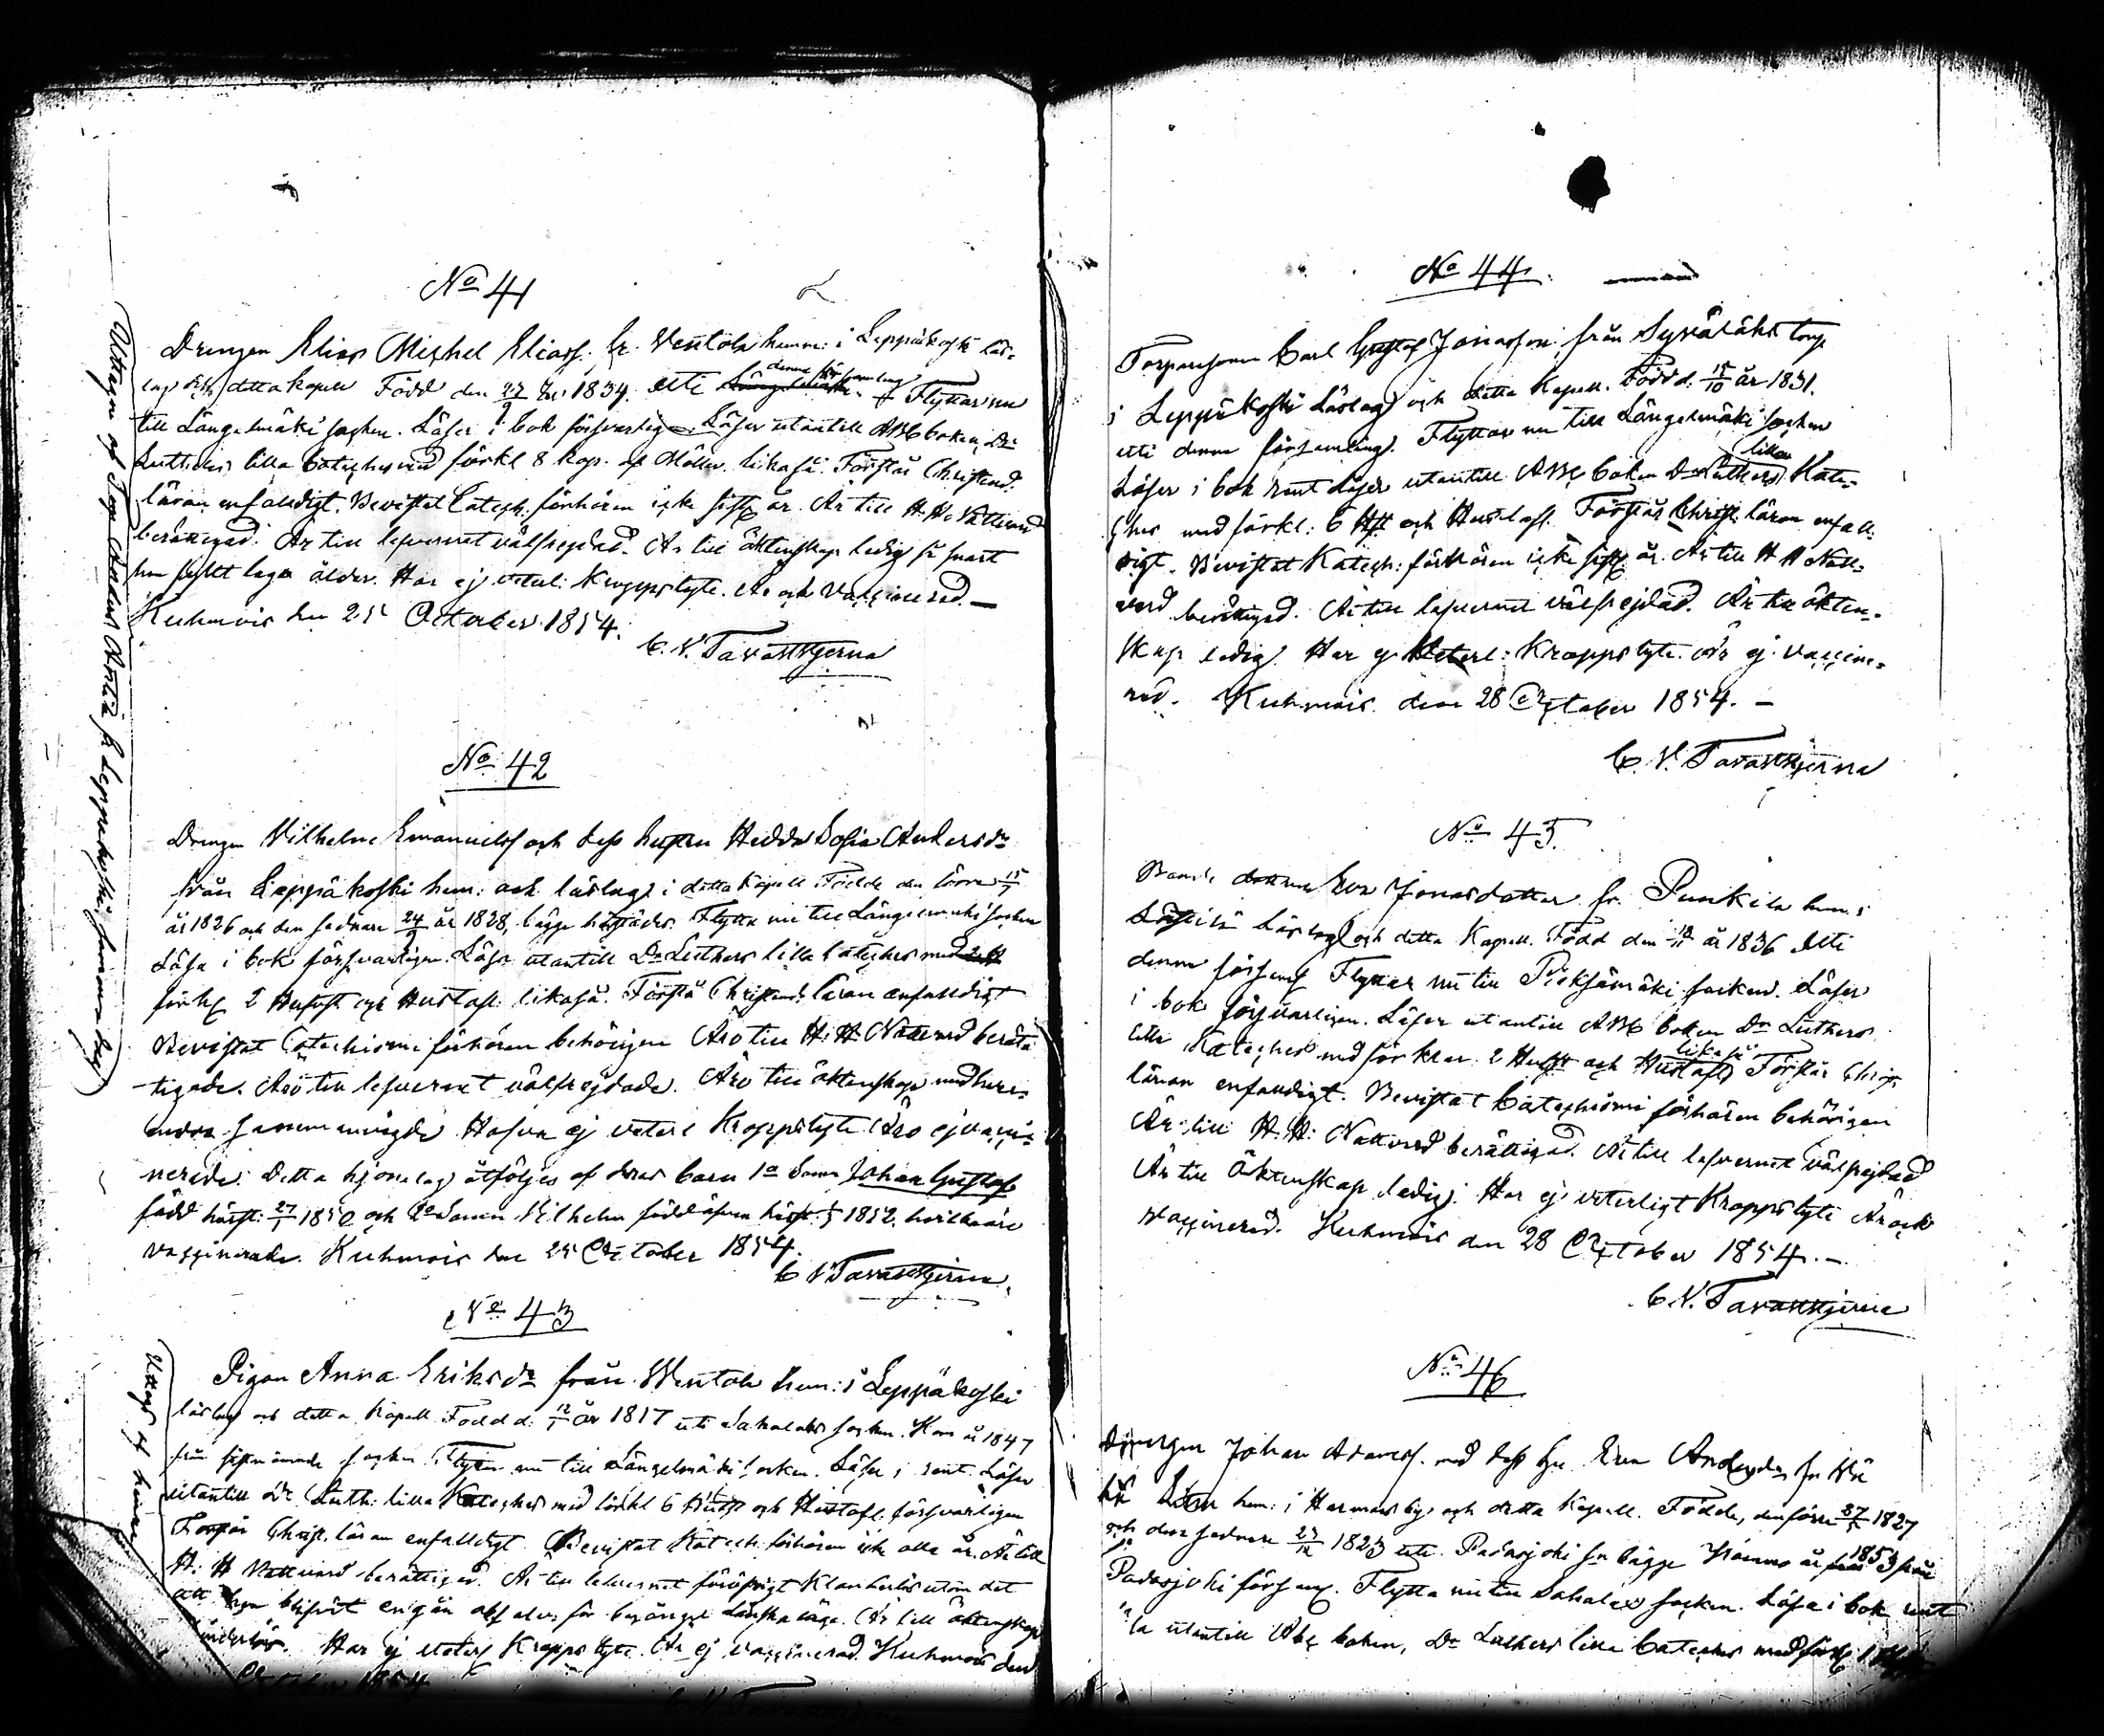 No 41
Drengen Elias Michel Eliass. fr. Ventola hemm: i Leppäkoski läs-
lag och detta kapell Född den 27/9 1834 uti denna församling Flyttar nu
till Längelmäki socken. Läser i bok försvarlig. Läser utantill ABC boken, Dr
Luthers lilla Cateches med förkl 8 kap. af Möller likaså. Förstår Christend.
läran enfaldigt. Bevistat Catech. förhören icke sista år. Är till H. H. Nattvard
berättigad. Är till lefvernet välfrejdad. Är till äktenskap ledig så snart
han fyllt laga ålder. Har ej veterl: Kroppslyte. Är ock Vaccinerad. —
Kuhmois den 25 October 1854.
C. N. Tavaststjerna
No 42
Drengen Vilhelm Emanuelss och dess hustru Hedda Sofia Andersdr
från Leppäkoski hem: och läslag i detta Kapell. Födde den förre 15/
år 1826 och den sednare 24/9 år 1828, bägge härstädes. Flytta nu till Längelmäki socken
Läsa i bok försvarligen. Läsa utantill Dr Luthers lilla Cateches med
förkl 2 Hufvst och Hustafl. likaså. Förstå Christend. läran enfaldigt
Bevistat Catechismi förhören behörigen Äro till H: H: Nattvard berät-
tigade. Äro till lefvernet välfrejdade. Äro till äktenskap med hvar-
andra sammanvigde. Hafva ej veterl Kroppslyte. Äro ej vacci-
nerade. Detta hjonelag åtföljes af deras barn 1o Sonen Johan Gustaf
född härst: 27/1 1850 och 2o Sonen Vilhelm född äfven härst: 1852, hvilka äro
vaccinerade. Kuhmois den 25 October 1854.
C N Tavaststjerna.
No 43
Pigan Anna Eriksdr från Wentola hem: i Leppäkoski
läslag och detta Kapell. Född d. 12/1 år 1817 uti Sahalaks socken. Kom år 1847
från sistnämnde socken. Flyttar nu till Längelmäki socken. Läser i rent. Läser
utantill Dr Luth: lilla Kateches med förkl 6 Hufst och Hustafl. försvarligen
Förstår Christ. läran enfaldigt. Bevistat Katech. förhören icke alla år. Är till
H. H Nattvard berättigad. Är till lefvernet föröfrigt klanderlös utom det
att hon blifvit en gång för begånget lönskaläge. Är till äktenskap
hinderlös. Har ej veterl Kroppslyte. Är ej vaccinerad. Kuhmois den
October 1854
C N. Tavaststjerna
Uttagen af Leppäkoski
Uttagit af henne
No 44.
Torparsonen Carl Gustaf Jonasson från torp
i Leppäkoski Läslag och detta Kapell. Född d. 15/10 år 1831.
uti denna församling. Flyttar nu till Längelmäki socken
Läser i bok rent. Läser utantill ABC boken Dr Luthers lilla Kate-
ches med förkl: 6 Hft och Hustafl. Förstår Christ. läran enfal-
digt. Bevistat Katech: förhören icke sista år. Är till H H Natt-
vard berättigad. Är till lefvernet välfrejdad. Är till äkten-
skap ledig. Har ej Veterl: Kroppslyte. Är ej vaccine-
rad. Kuhmois den 28 October 1854. —
C. N. Tavaststjerna
No 45.
dottren Eva Jonasdotter fr. Punkila hem: i
Läslag och detta Kapell. Född den 18/11 år 1836 Uti
denna förseml Flyttar nu till Pieksämäki socken. Läser
i bok försvarligen. Läser utantill ABC boken Dr Luthers
lilla Kateches med förklar. 2 Hufst och Hustafl likaså Förstår Christ.
läran enfaldigt. Bevistat Catechismi förhören behörigen
Är till H. H: Nattvard berättigad. Är till lefvernet välfrejdad
Är till Äktenskap ledig. Har ej veterligt Kroppslyte Är ock
vaccinerad. Kuhmois den 28 October 1854. —
C. N. Tavaststjerna
No 46
Drengen Johan Adamss. med dess hu Eva Andersdr fr
hem: i Harmois by och detta Kapell. Födde, den förre 27/ 1827
och den sednare 23/12 1823 uti Padasjoki fr bägge komne år 1853 från
Padasjoki förseml. Flytta nu till Sahalax socken. Läsa i bok rent
utantill Abc boken, Dr Luthers lilla Cateches med förkl 1